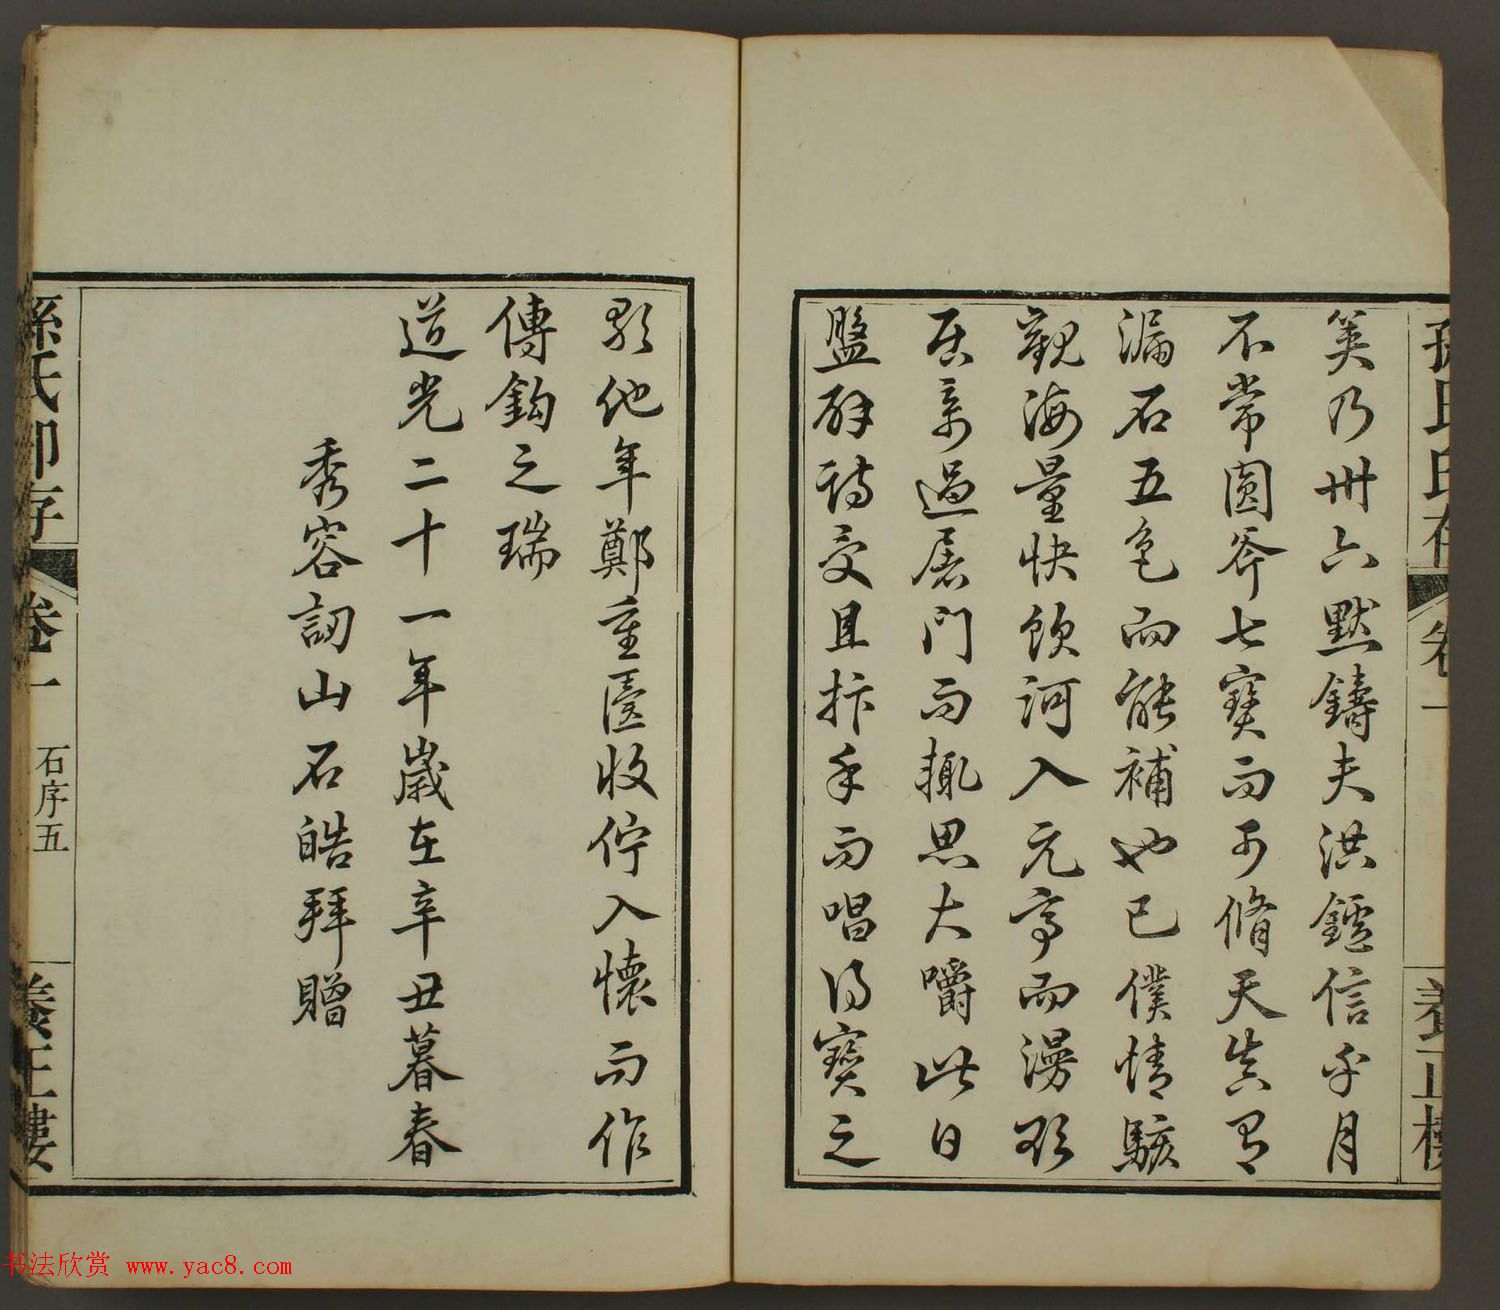 孫氏印存
卷一
養正樓
筭乃卅六默鑄夫洪鑪信乎月
不常圓斧七寶而可脩天真有
漏石五色而能補也已僕情駭
觀海量快飲河入元亭而漫歌
居京過屠門而輒思大嚼此日
盤辟詩受且抃手而唱得寶之
歌他年鄭重匳收佇入懷而作
傳鈎之瑞
道光二十一年歲在辛丑暮春
秀容訒山石皓拜贈
孫氏印存
卷一
石序五
養正樓
书法欣赏 www.yac8.com